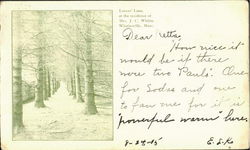 Lovers' Lane
at the residence of
Mrs. J. C. Whitin
Whitinsville, Mass.
Dear etta,
How nice it
would be if there
were two Pauls. One
for Sodas and one
to fan me for it is
"powerful warm" here.
8-24-05 E. L. K.